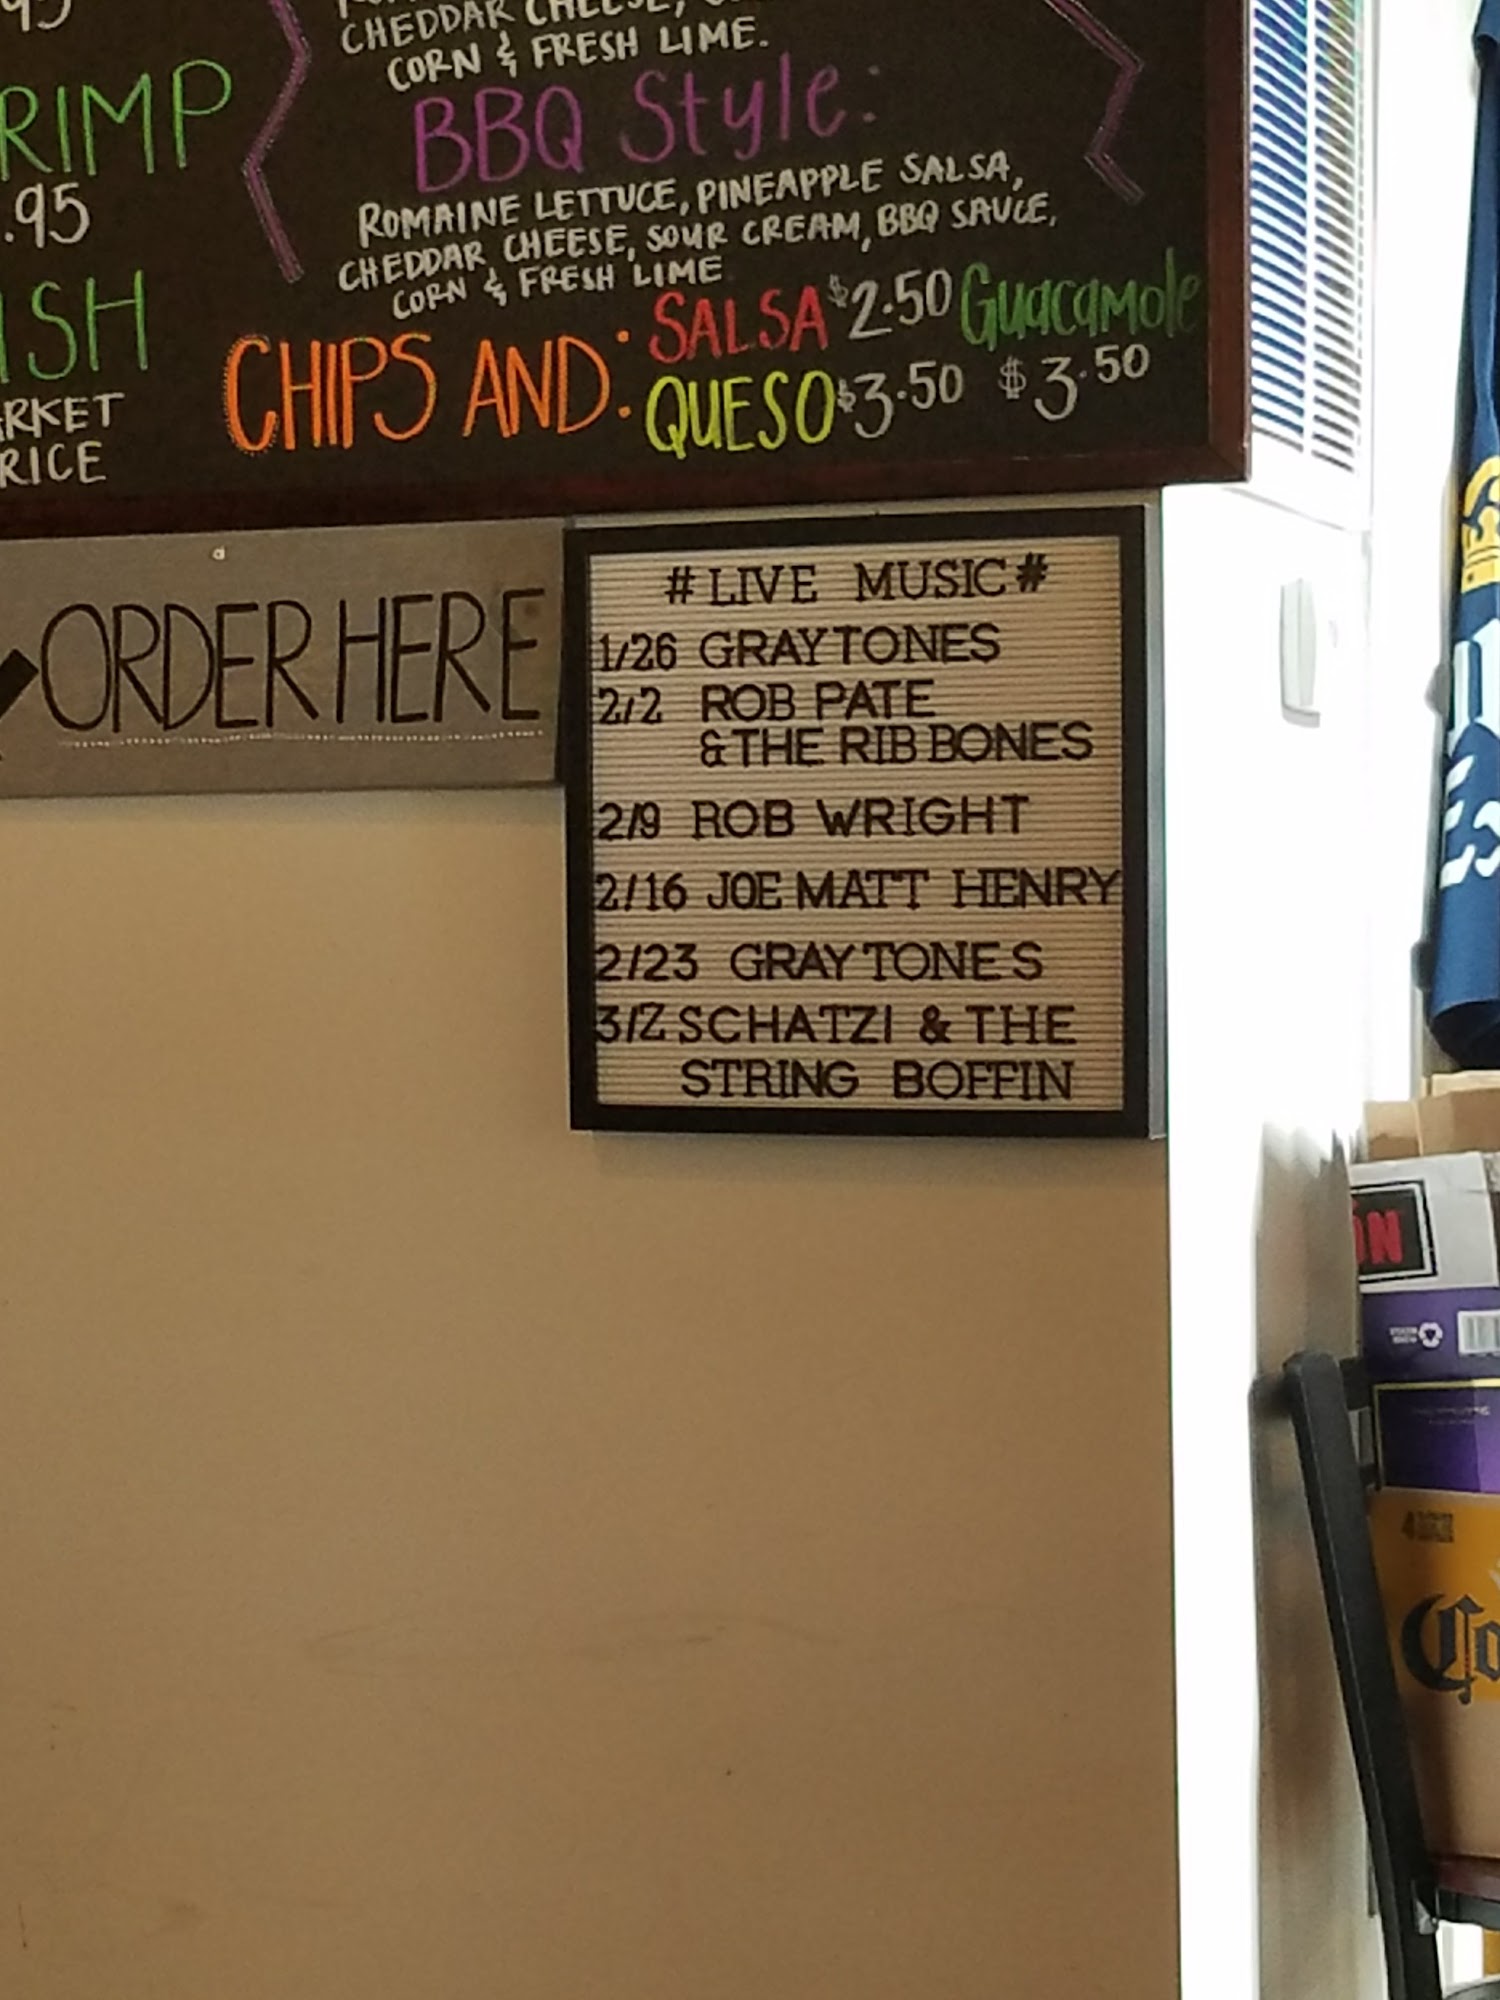 CHEDDAR CHEESE,
CORN & FRESH LIME.
BBQ Style:
ROMAINE LETTUCE, PINEAPPLE SALSA,
CHEDDAR CHEESE, SOUR CREAM, BBQ SAUCE,
CORN & FRESH LIME
RIMP
.95
ISH
ARKET
RICE
CHIPS AND:
SALSA $2.50 Guacamole
QUESO $3.50 $3.50
ORDER HERE
#LIVE MUSIC#
1/26 GRAYTONES
2/2 ROB PATE
&THE RIB BONES
2/9 ROB WRIGHT
2/16 JOE MATT HENRY
2/23 GRAYTONES
3/2 SCHATZI & THE
STRING BOFFIN
ÓN
Co